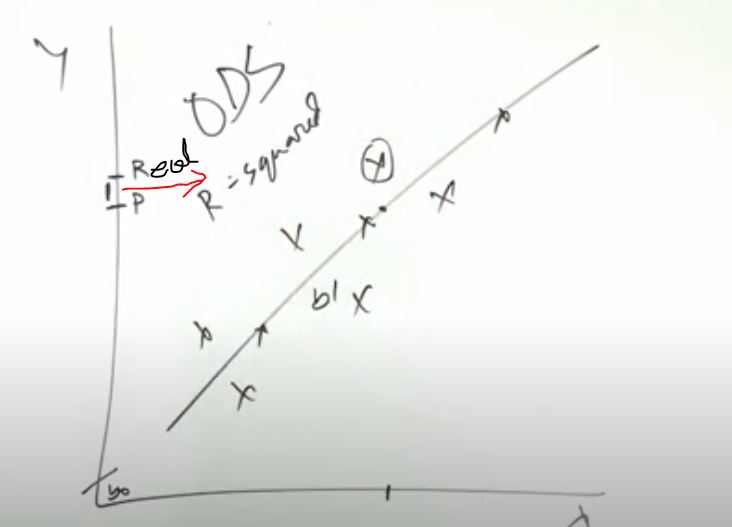 Y
ODS
R-squared
Real
P
b1
b0
X